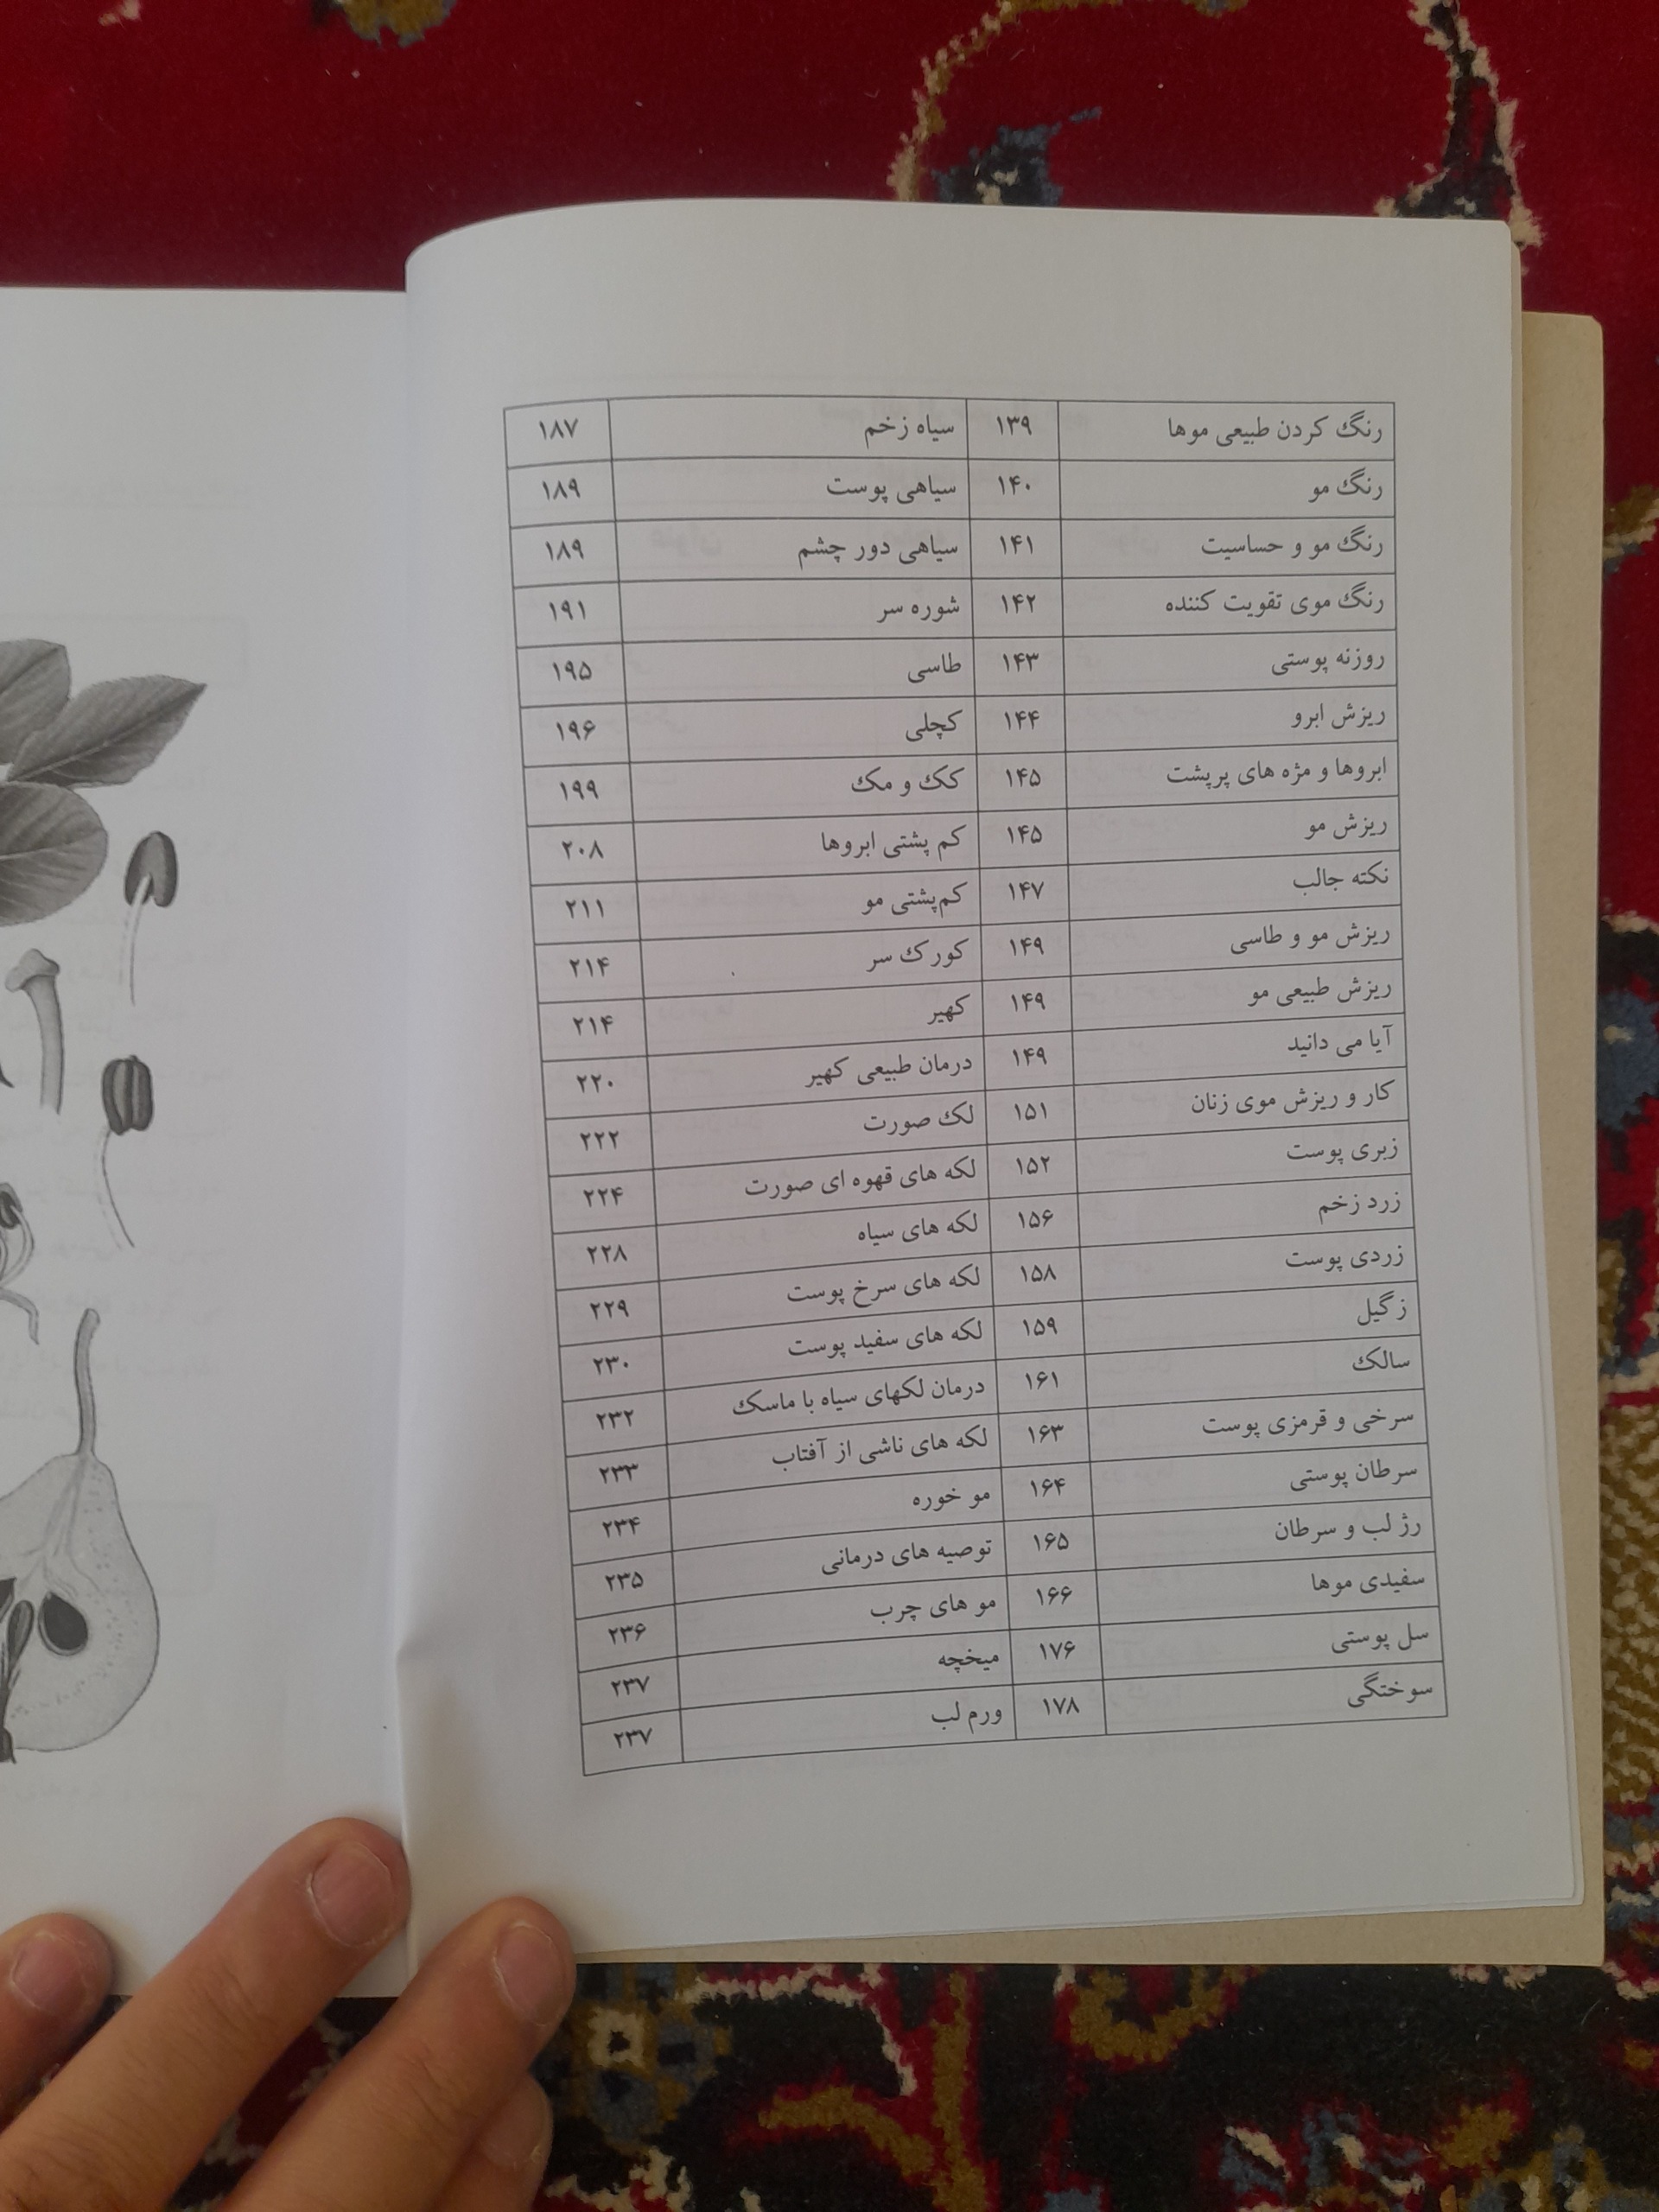 رنگ کردن طبیعی موها ۱۳۹ سیاه زخم ۱۸۷
رنگ مو ۱۴۰ سیاهی پوست ۱۸۹
رنگ مو و حساسیت ۱۴۱ سیاهی دور چشم ۱۸۹
رنگ موی تقویت کننده ۱۴۲ شوره سر ۱۹۱
روزنه پوستی ۱۴۳ طاسی ۱۹۵
ریزش ابرو ۱۴۴ کچلی ۱۹۶
ابروها و مژه های پرپشت ۱۴۵ کک و مک ۱۹۹
ریزش مو ۱۴۵ کم پشتی ابروها ۲۰۸
نکته جالب ۱۴۷ کم‌پشتی مو ۲۱۱
ریزش مو و طاسی ۱۴۹ کورک سر ۲۱۴
ریزش طبیعی مو ۱۴۹ کهیر ۲۱۴
آیا می دانید ۱۴۹ درمان طبیعی کهیر ۲۲۰
کار و ریزش موی زنان ۱۵۱ لک صورت ۲۲۲
زبری پوست ۱۵۲ لکه های قهوه ای صورت ۲۲۴
زرد زخم ۱۵۶ لکه های سیاه ۲۲۸
زردی پوست ۱۵۸ لکه های سرخ پوست ۲۲۹
زگیل ۱۵۹ لکه های سفید پوست ۲۳۰
سالک ۱۶۱ درمان لکهای سیاه با ماسک ۲۳۲
سرخی و قرمزی پوست ۱۶۳ لکه های ناشی از آفتاب ۲۳۳
سرطان پوستی ۱۶۴ مو خوره ۲۳۴
رژ لب و سرطان ۱۶۵ توصیه های درمانی ۲۳۵
سفیدی موها ۱۶۶ مو های چرب ۲۳۶
سل پوستی ۱۷۶ میخچه ۲۳۷
سوختگی ۱۷۸ ورم لب ۲۳۷